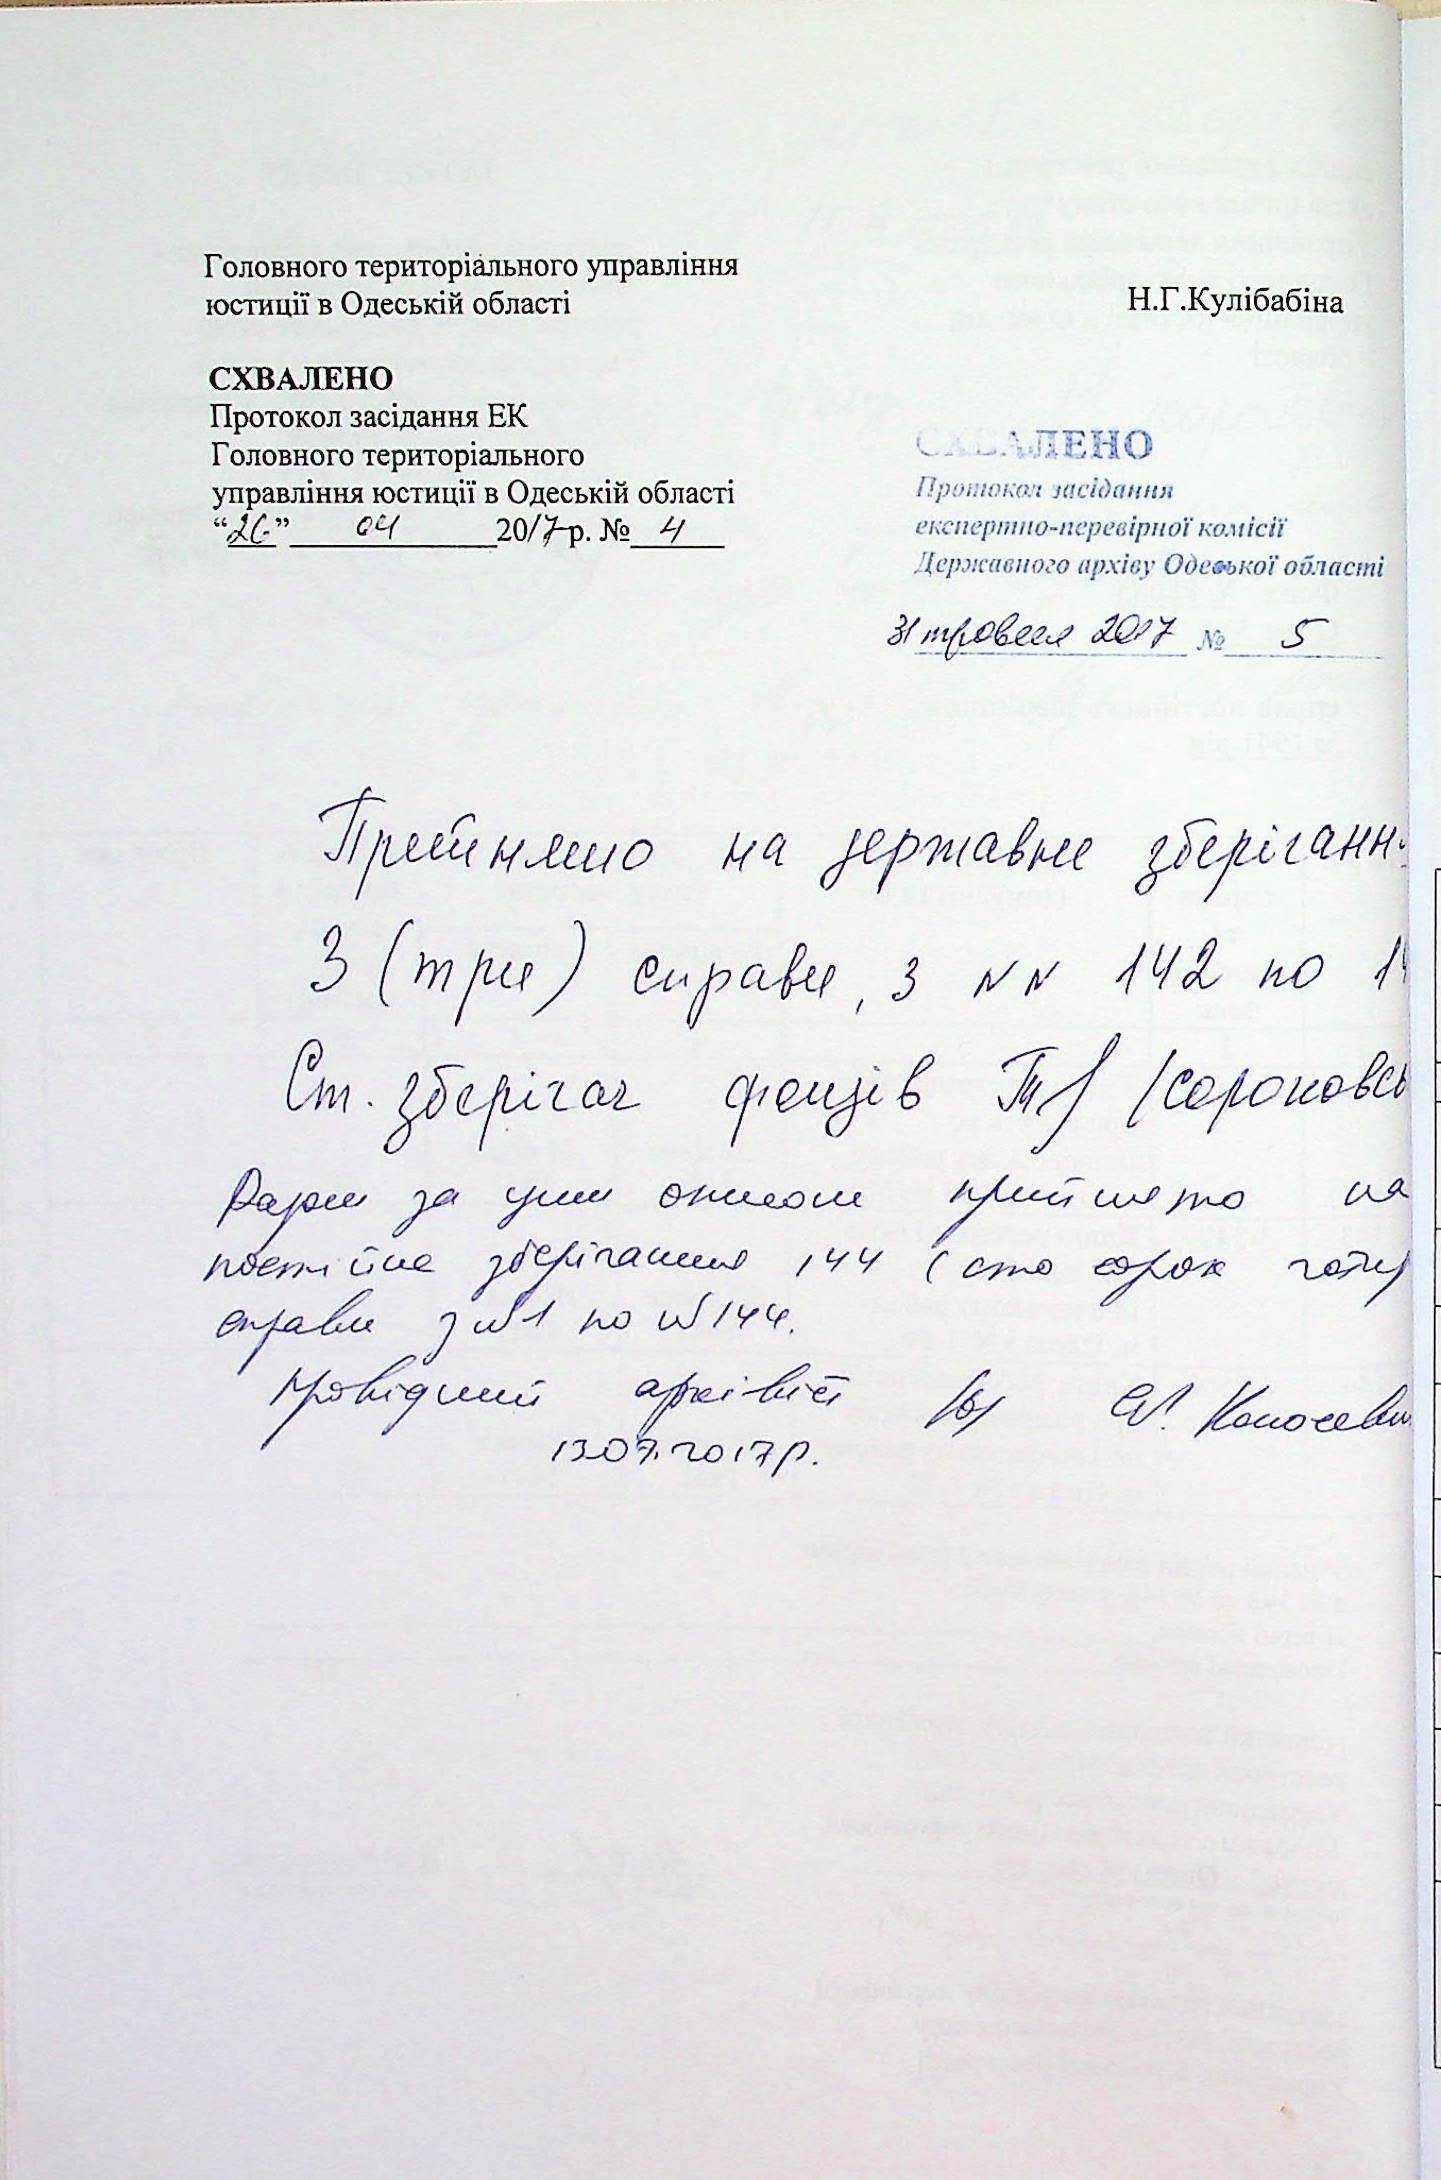 Головного територіального управління
юстиції в Одеській області
Н.Г.Кулібабіна
СХВАЛЕНО
Протокол засідання ЕК
Головного територіального
управління юстиції в Одеській області
“26” 04 2017р. № 4
СХВАЛЕНО
Протокол засідання
експертно-перевірної комісії
Державного архіву Одеської області
31 травня 2017 № 5
Прийнято на державне зберіганн
3 (три) справи, з NN 142 по 14
Ст. зберігач фондів (сороковсь
за цим описом прийнято на
постійне зберігання 144 (сто сорок чотир
справи з №1 по №144.
Провідний архівіст
13.07.2017р.